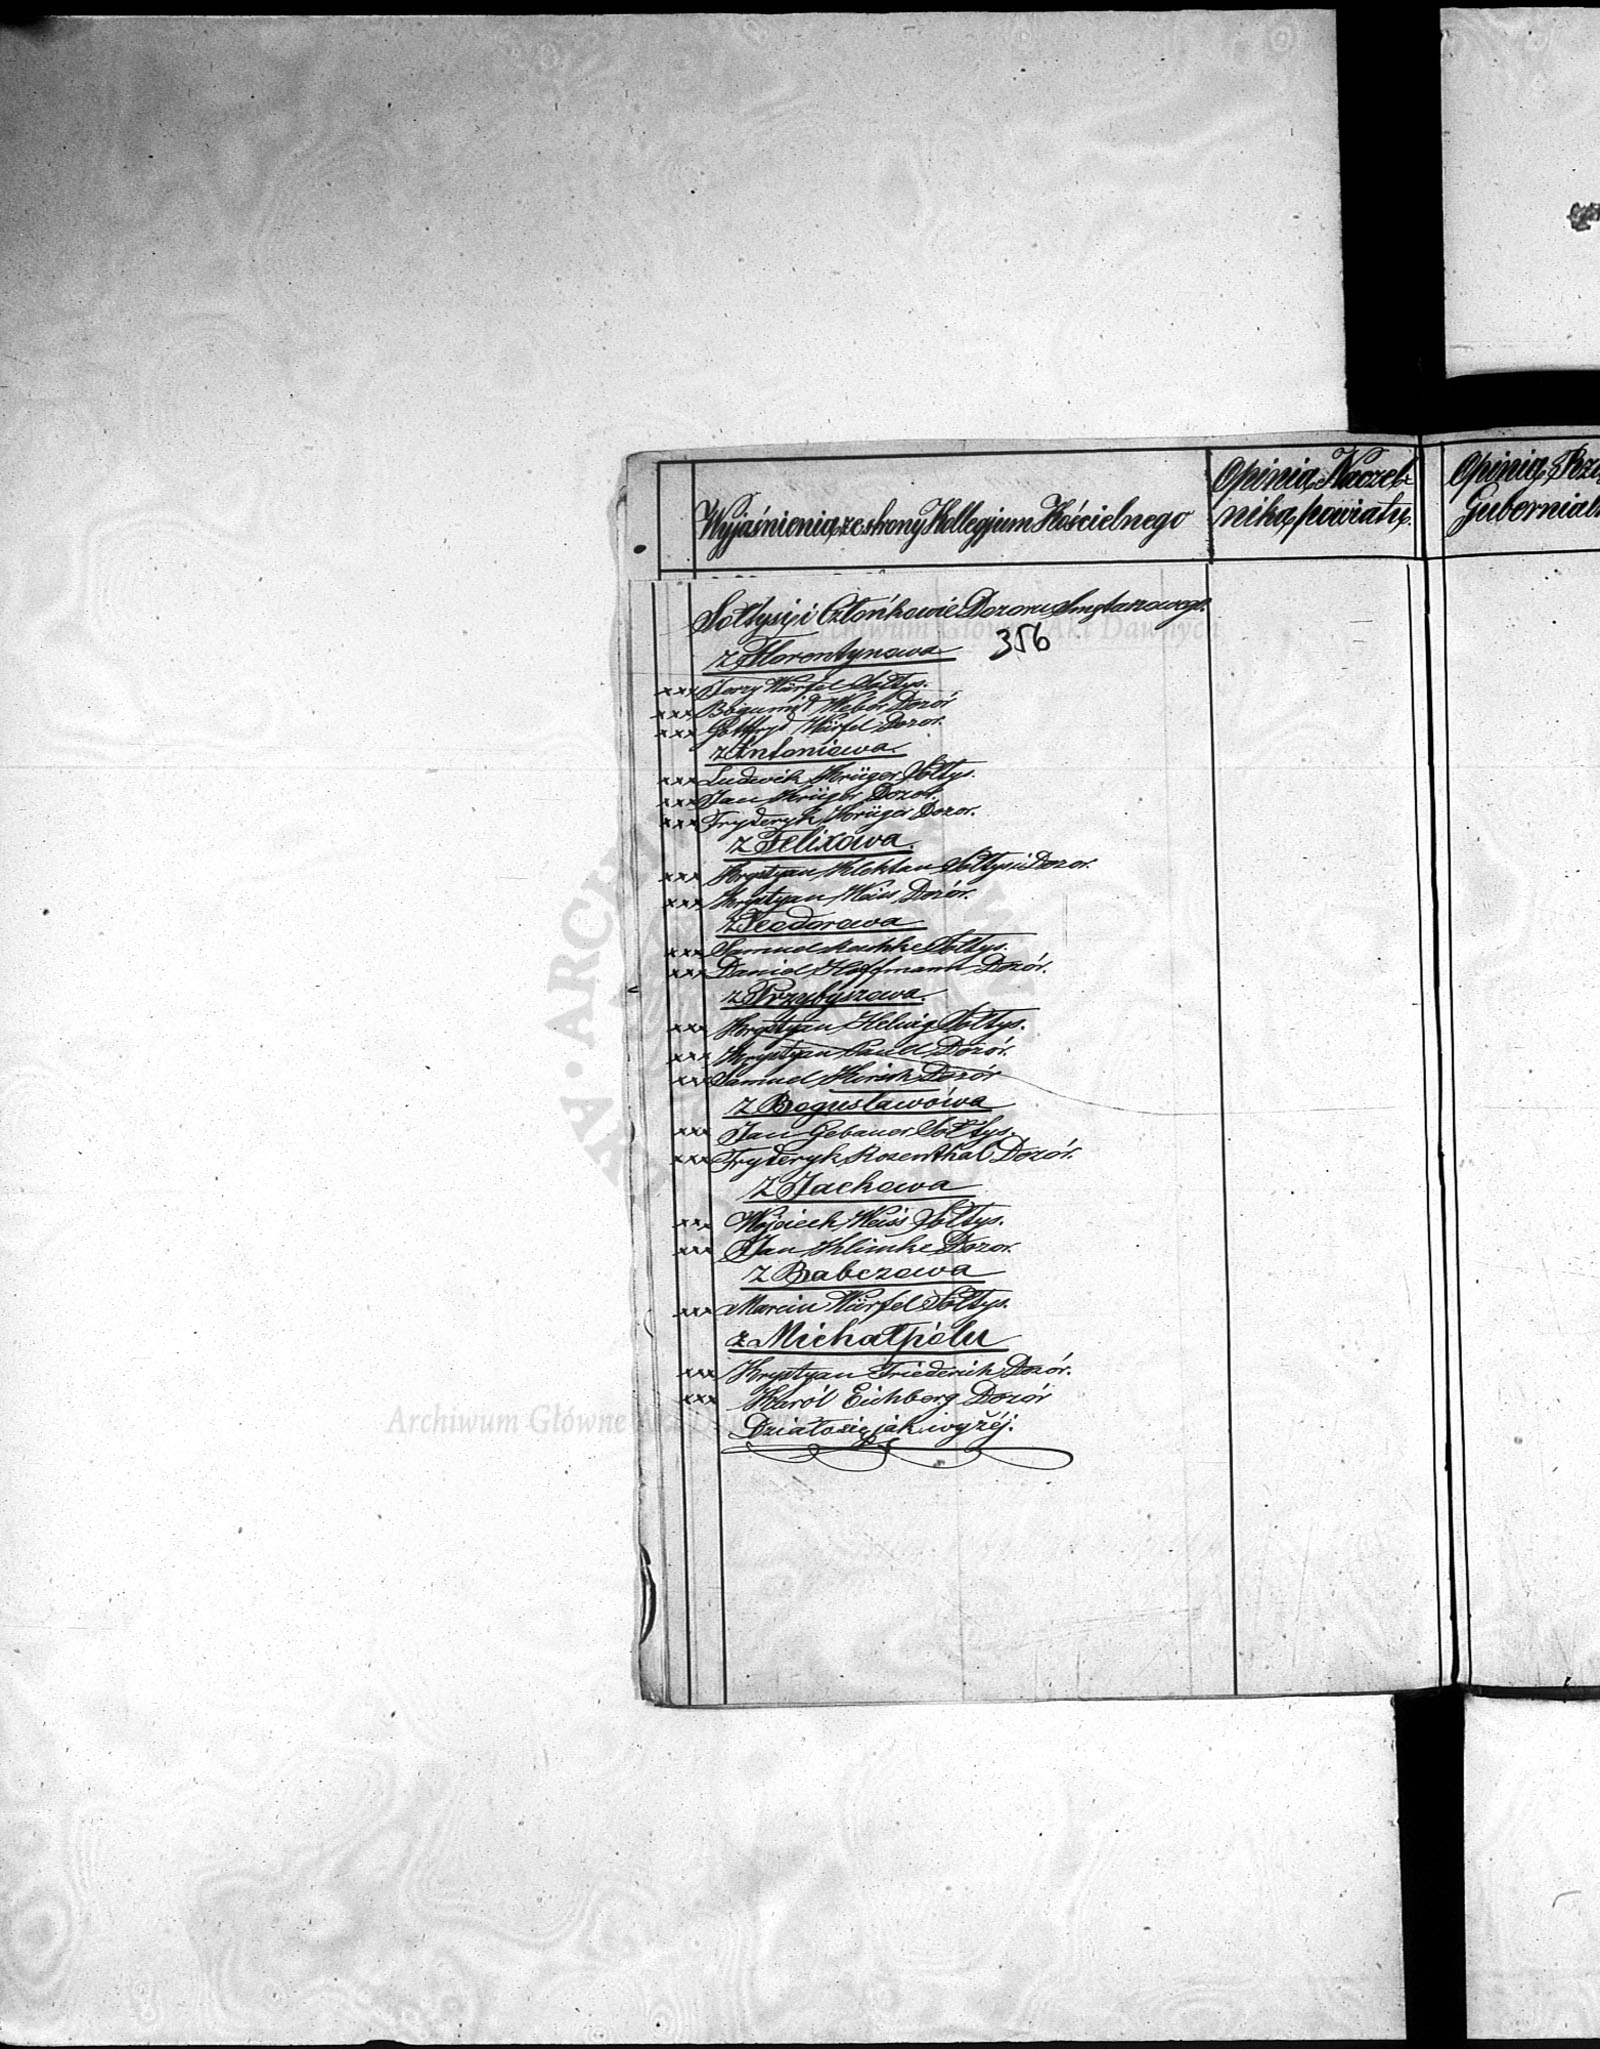 Wyjaśnienia ze strony Kollegjum Kościelnego
Opinia Naczel-
nika powiatu
Opinia Rzą
Gubernial
Sołtysi i Członkowie Dozoru Smętarzowego.
z Florentynowa 356
xxx Jerzy Würfel Sołtys.
xxx Bogumił Weber Dozór
xxx Gottfryd Würfel Dozor.
z Antoniowa.
xxx Ludwik Krüger Sołtys.
xxx Jan Krüger Dozor.
xxx Fryderyk Krüger Dozor.
z Felixowa.
xxx Krystyan Klektau Sołtys i Dozor.
xxx Krystyan Weiss Dozór.
z Teodorowa
xxx Samuel Sołtys.
xxx Daniel Hoffmann Dozór.
z Przybyszowa.
xxx Krystyan Helwig Sołtys.
xxx Krystyan Paul Dozór.
xxx Samuel Hirsch Dozór
z Bogusławowa
xxx Jan Gebauer Sołtys.
xxx Fryderyk Rosenthal Dozór.
z Jackowa
xxx Wojciech Weiss Sołtys.
xxx Jan Klimke Dozor.
z Babczowa
xxx Marcin Würfel Sołtys.
z Michałpólu
xxx Krystyan Friederich Dozór.
xxx Karól Eichberg Dozór
Działo się jak wyżéj.
Archiwum Główne Akt Dawnych
Archiwum Główne Akt Dawnych